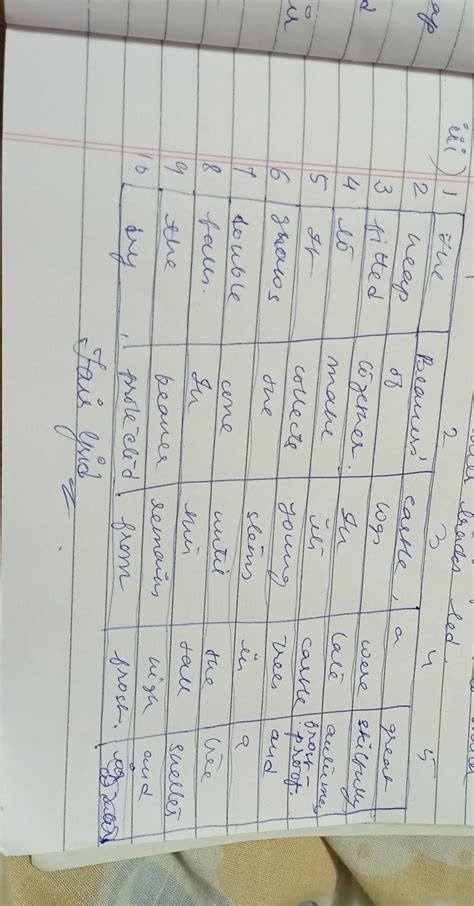 led
iii) 1 2 3 4 5
The Beavers' castle, a great
2 heap of logs were skilfully
3 fitted together. In late autumn,
4 to make its castle frost-proof.
5 It collects young trees and
6 gnaws the stems in a
7 double cone until the tree
8 falls. In this tall shelter
9 the beaver remains high and
10 dry, protected from frost.
Fair Grid